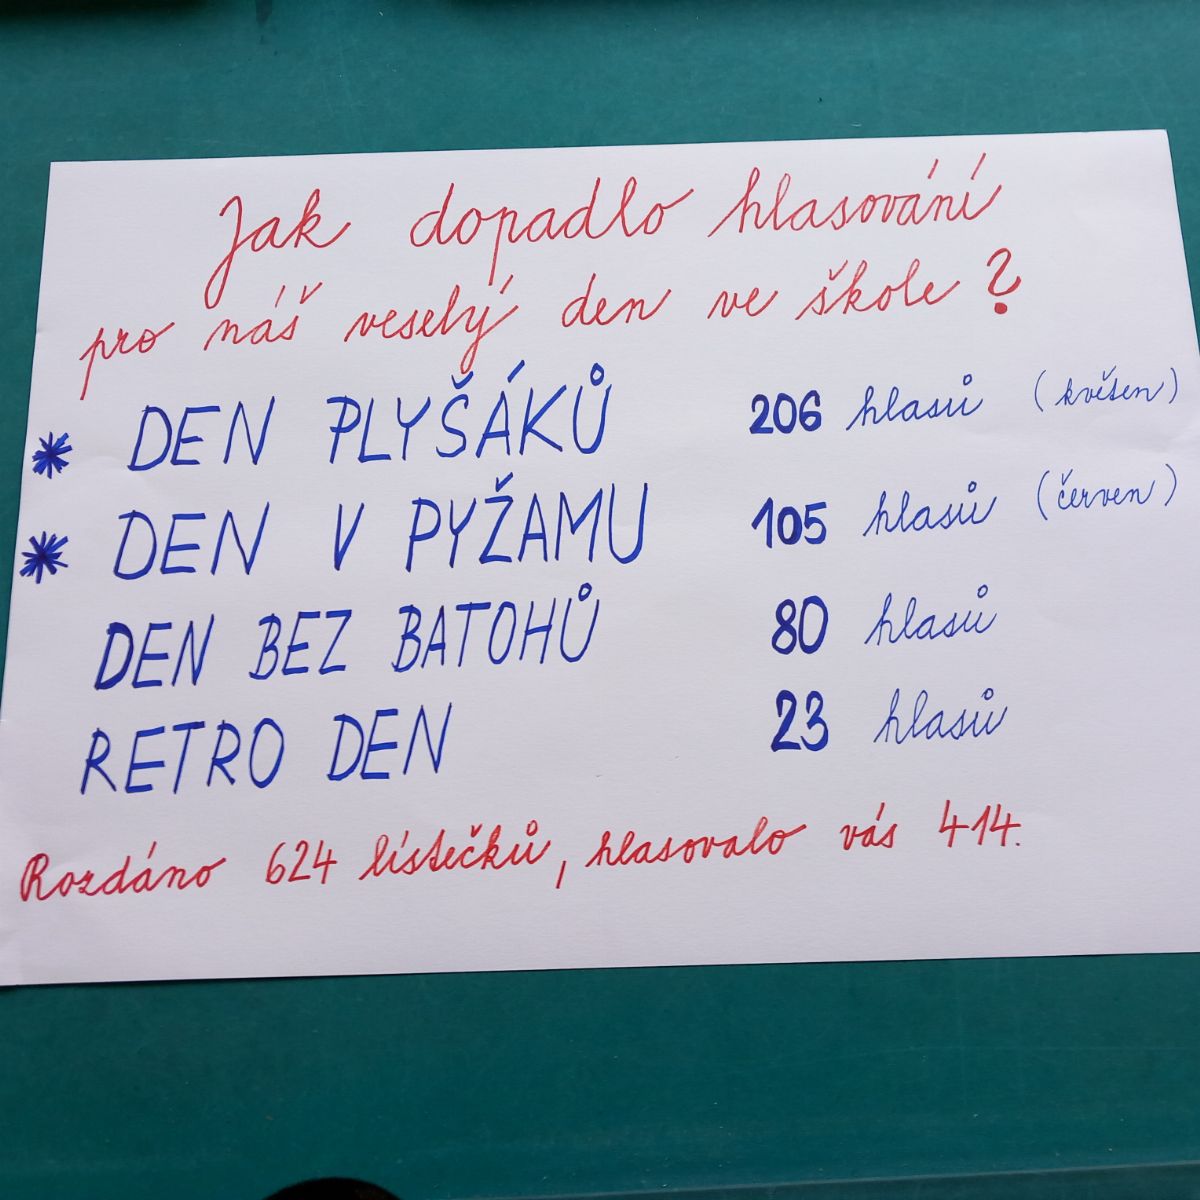 Jak dopadlo hlasování
pro náš veselý den ve škole?
* DEN PLYŠÁKŮ 206 hlasů (květen)
* DEN V PYŽAMU 105 hlasů (červen)
DEN BEZ BATOHŮ 80 hlasů
RETRO DEN 23 hlasů
Rozdáno 624 lístečků, hlasovalo vás 414.